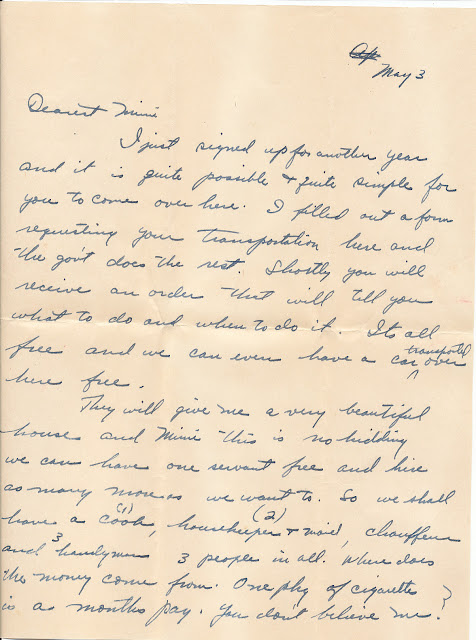 Ap
May 3
Dearest Mimi
I just signed up for another year
and it is quite possible & quite simple for
you to come over here. I filled out a form
requesting your transportation here and
the gov't does the rest. Shortly you will
receive an order that will tell you
what to do and when to do it. Its all
free and we can even have a car transported over
here free.
They will give me a very beautiful
house and Mimi this is no kidding
we can have one servant free and hire
as many more as we want to. So we shall
have a (1) cook, housekeeper & maid (2), chauffeur
and 3 handyman 3 people in all. Where does
the money come from. One pkg of cigarettes
is a months pay. You don't believe me?